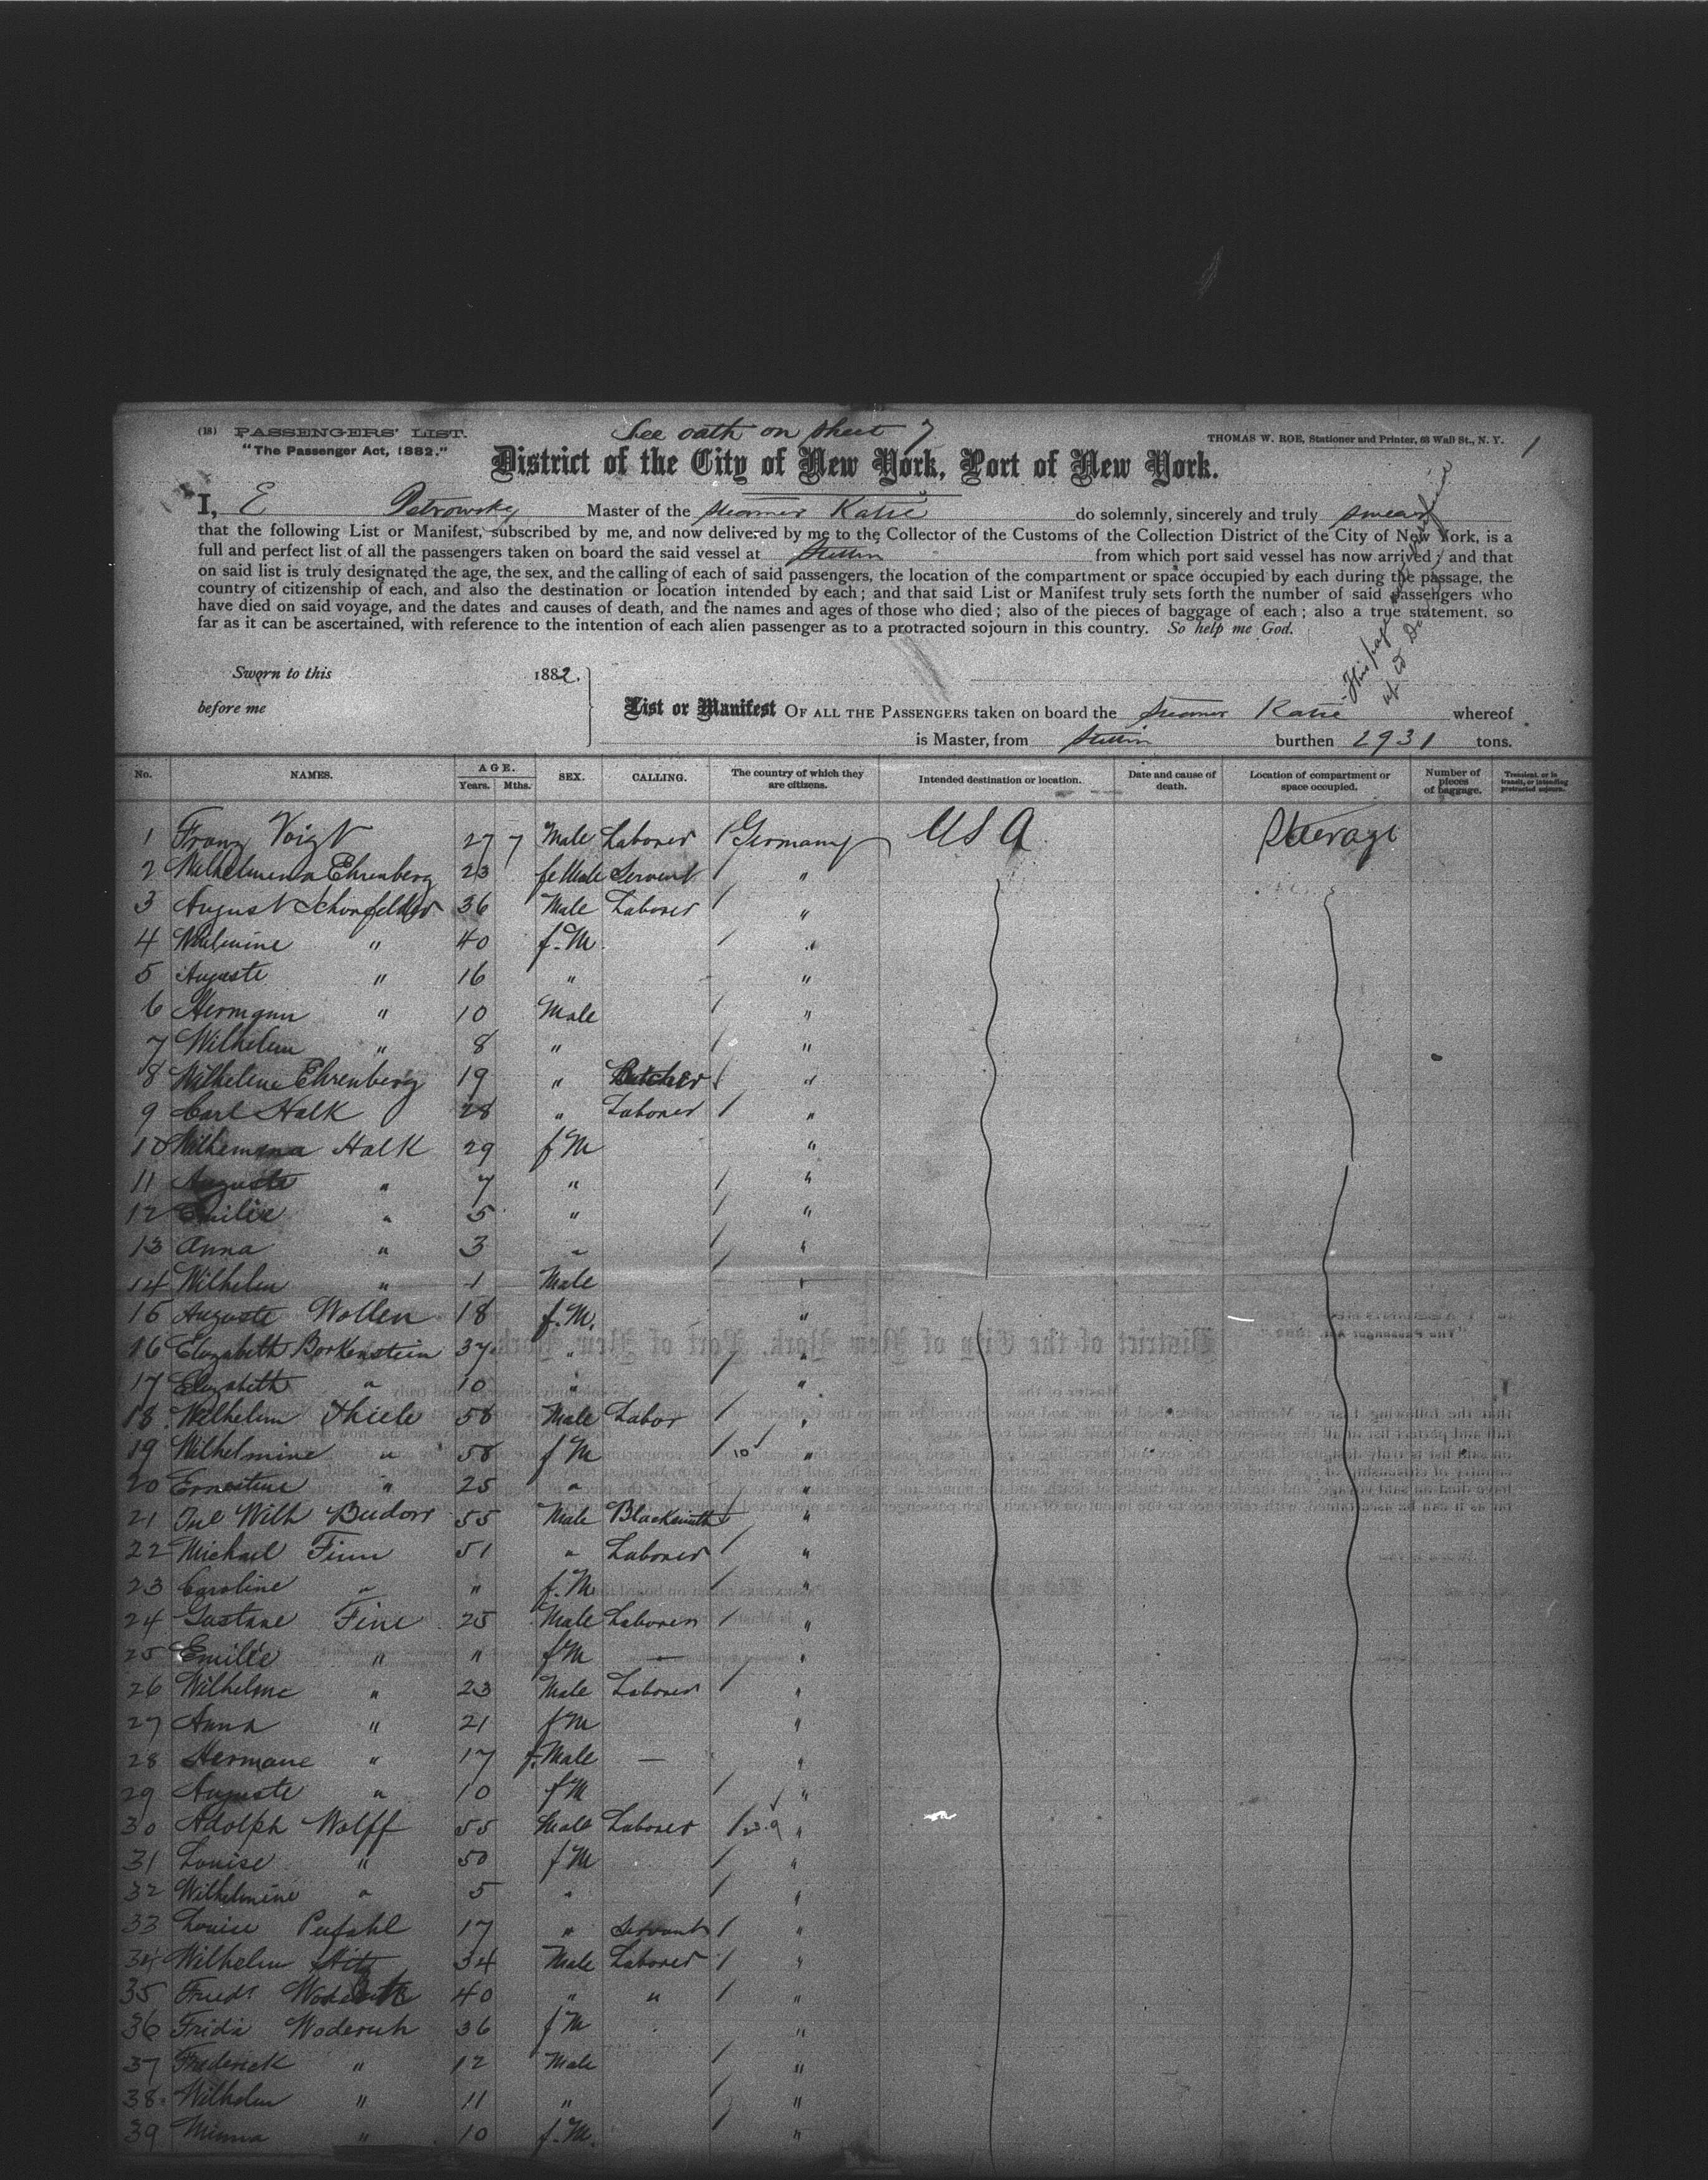 See oath on sheet 7
(18) PASSENGERS' LIST. THOMAS W. ROE, Stationer and Printer, 63 Wall St., N. Y. 1
"The Passenger Act, 1882."
District of the City of New York, Port of New York.
I, E Petrowsky Master of the steamer Katie do solemnly, sincerely and truly swear
that the following List or Manifest, subscribed by me, and now delivered by me to the Collector of the Customs of the Collection District of the City of New York, is a
full and perfect list of all the passengers taken on board the said vessel at Stettin from which port said vessel has now arrived; and that
on said list is truly designated the age, the sex, and the calling of each of said passengers, the location of the compartment or space occupied by each during the passage, the
country of citizenship of each, and also the destination or location intended by each; and that said List or Manifest truly sets forth the number of said passengers who
have died on said voyage, and the dates and causes of death, and the names and ages of those who died; also of the pieces of baggage of each; also a true statement, so
far as it can be ascertained, with reference to the intention of each alien passenger as to a protracted sojourn in this country. So help me God.
Sworn to this 1882.
before me
List or Manifest OF ALL THE PASSENGERS taken on board the steamer Katie whereof
is Master, from Stettin burthen 2931 tons.
No. NAMES. AGE. Years. Mths. SEX. CALLING. The country of which they are citizens. Intended destination or location. Date and cause of death. Location of compartment or space occupied. Number of pieces of baggage. Transient, or in transit, or intending protracted sojourn.
1 Franz Voigt 27 7 Male Laborer / Germany U S A Steerage
2 Wilhelmena Ehrenberg 23 feMale Servent / "
3 August Schonfelder 36 Male Laborer / "
4 " 40 f.M. / "
5 Auguste " 16 " "
6 Hermann " 10 Male / "
7 Wilhelm " 8 " / "
8 Wilhelme Ehrenberg 19 " Butcher / "
9 Carl Halk 28 " Laborer / "
10 Wilhemena Halk 29 f M "
11 Auguste " 7 " / "
12 Emilie " 5 " / "
13 Anna " 3 " / "
14 Wilhelm " 1 Male "
15 Auguste Wollen 18 f.M. "
16 Elizabeth Borkenstein 37 " / "
17 Elizabeth " 10 " "
18 Wilhelm Thiele 58 Male Labor / "
19 Wilhelmine " 58 f M / 10 "
20 Ernestine " 25 " "
21 Wilh 55 Male Blacksmith / "
22 Michael Finn 51 " Laborer / "
23 Caroline " " f.M / "
24 Gustave Fine 25 Male Laborer / "
25 Emilie " " f M — "
26 Wilhelme " 23 Male Laborer / "
27 Anna " 21 f M "
28 Hermane " 17 f.Male — "
29 Auguste " 10 f M / "
30 Adolph Wolff 55 Male Laborer / "
31 Louise " 50 f M / "
32 Wilhelmine " 5 " / "
33 Louise Pufahl 17 " Servant / "
34 Wilhelm 34 Male Laborer / "
35 Friedr 40 " " / "
36 Frida Woderich 36 f M "
37 Frederick " 12 Male / "
38 Wilhelm " 11 " / "
39 Minna " 10 f.M. / "